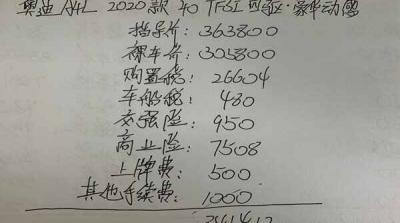 奥迪A4L 2020款 40 TFSI 四驱·豪华动感
指导价: 363800
裸车价: 305800
购置税: 26604
车船税: 480
交强险: 950
商业险: 7508
上牌费: 500
其他手续费: 1000